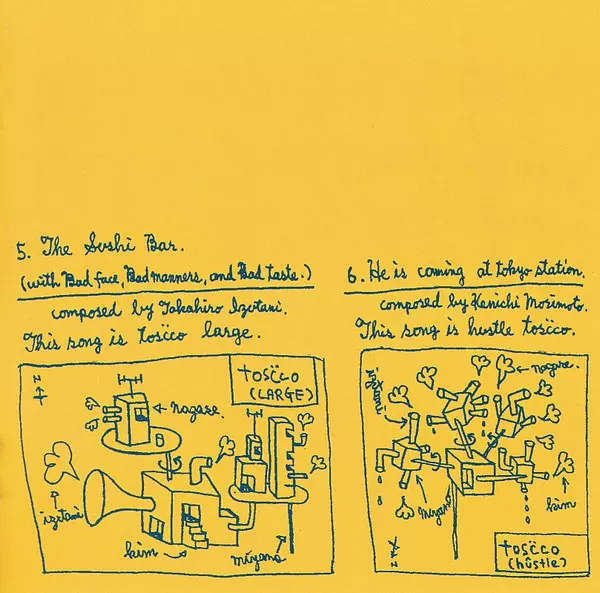 5. The Sushi Bar.
(with Bad face, Bad manners, and Bad taste.)
composed by Takahiro Izutani.
This song is tosċco large.
tosċco
(LARGE)
N
nagase.
izutani
kim
miyano
6. He is coming at tokyo station.
composed by Kenichi Morimoto.
This song is hustle tosċco.
nagase.
izutani
miyano
kim
N
tosċco
(hûstle)